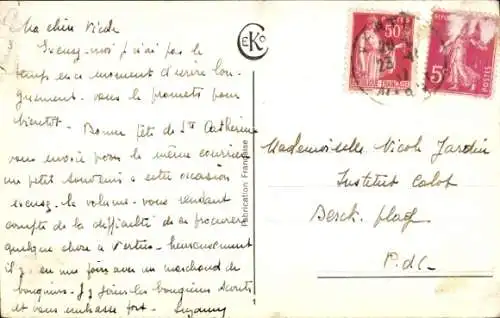 Ma chère Nicole
Excuse-moi, je n'ai pas le
temps en ce moment d'écrire lon-
guement - vous le promets pour
bientôt - Bonne fête de Ste Catherine
vous envoie par le même courrier
un petit souvenir à cette occasion
excusez le volume - vous rendant
compte de la difficulté de se procurer
quelque chose à Vertus - heureusement
il y en une fois avec un marchand de
bouquins - J'y joins les bouquins scouts
et vous embrasse fort -
CEKO
Fabrication Française
50c
POSTES
RÉPUBLIQUE FRANÇAISE
5c
POSTES
Mademoiselle Nicole Jardin
Institut Calot
Berck-plage
P.d.C.
1